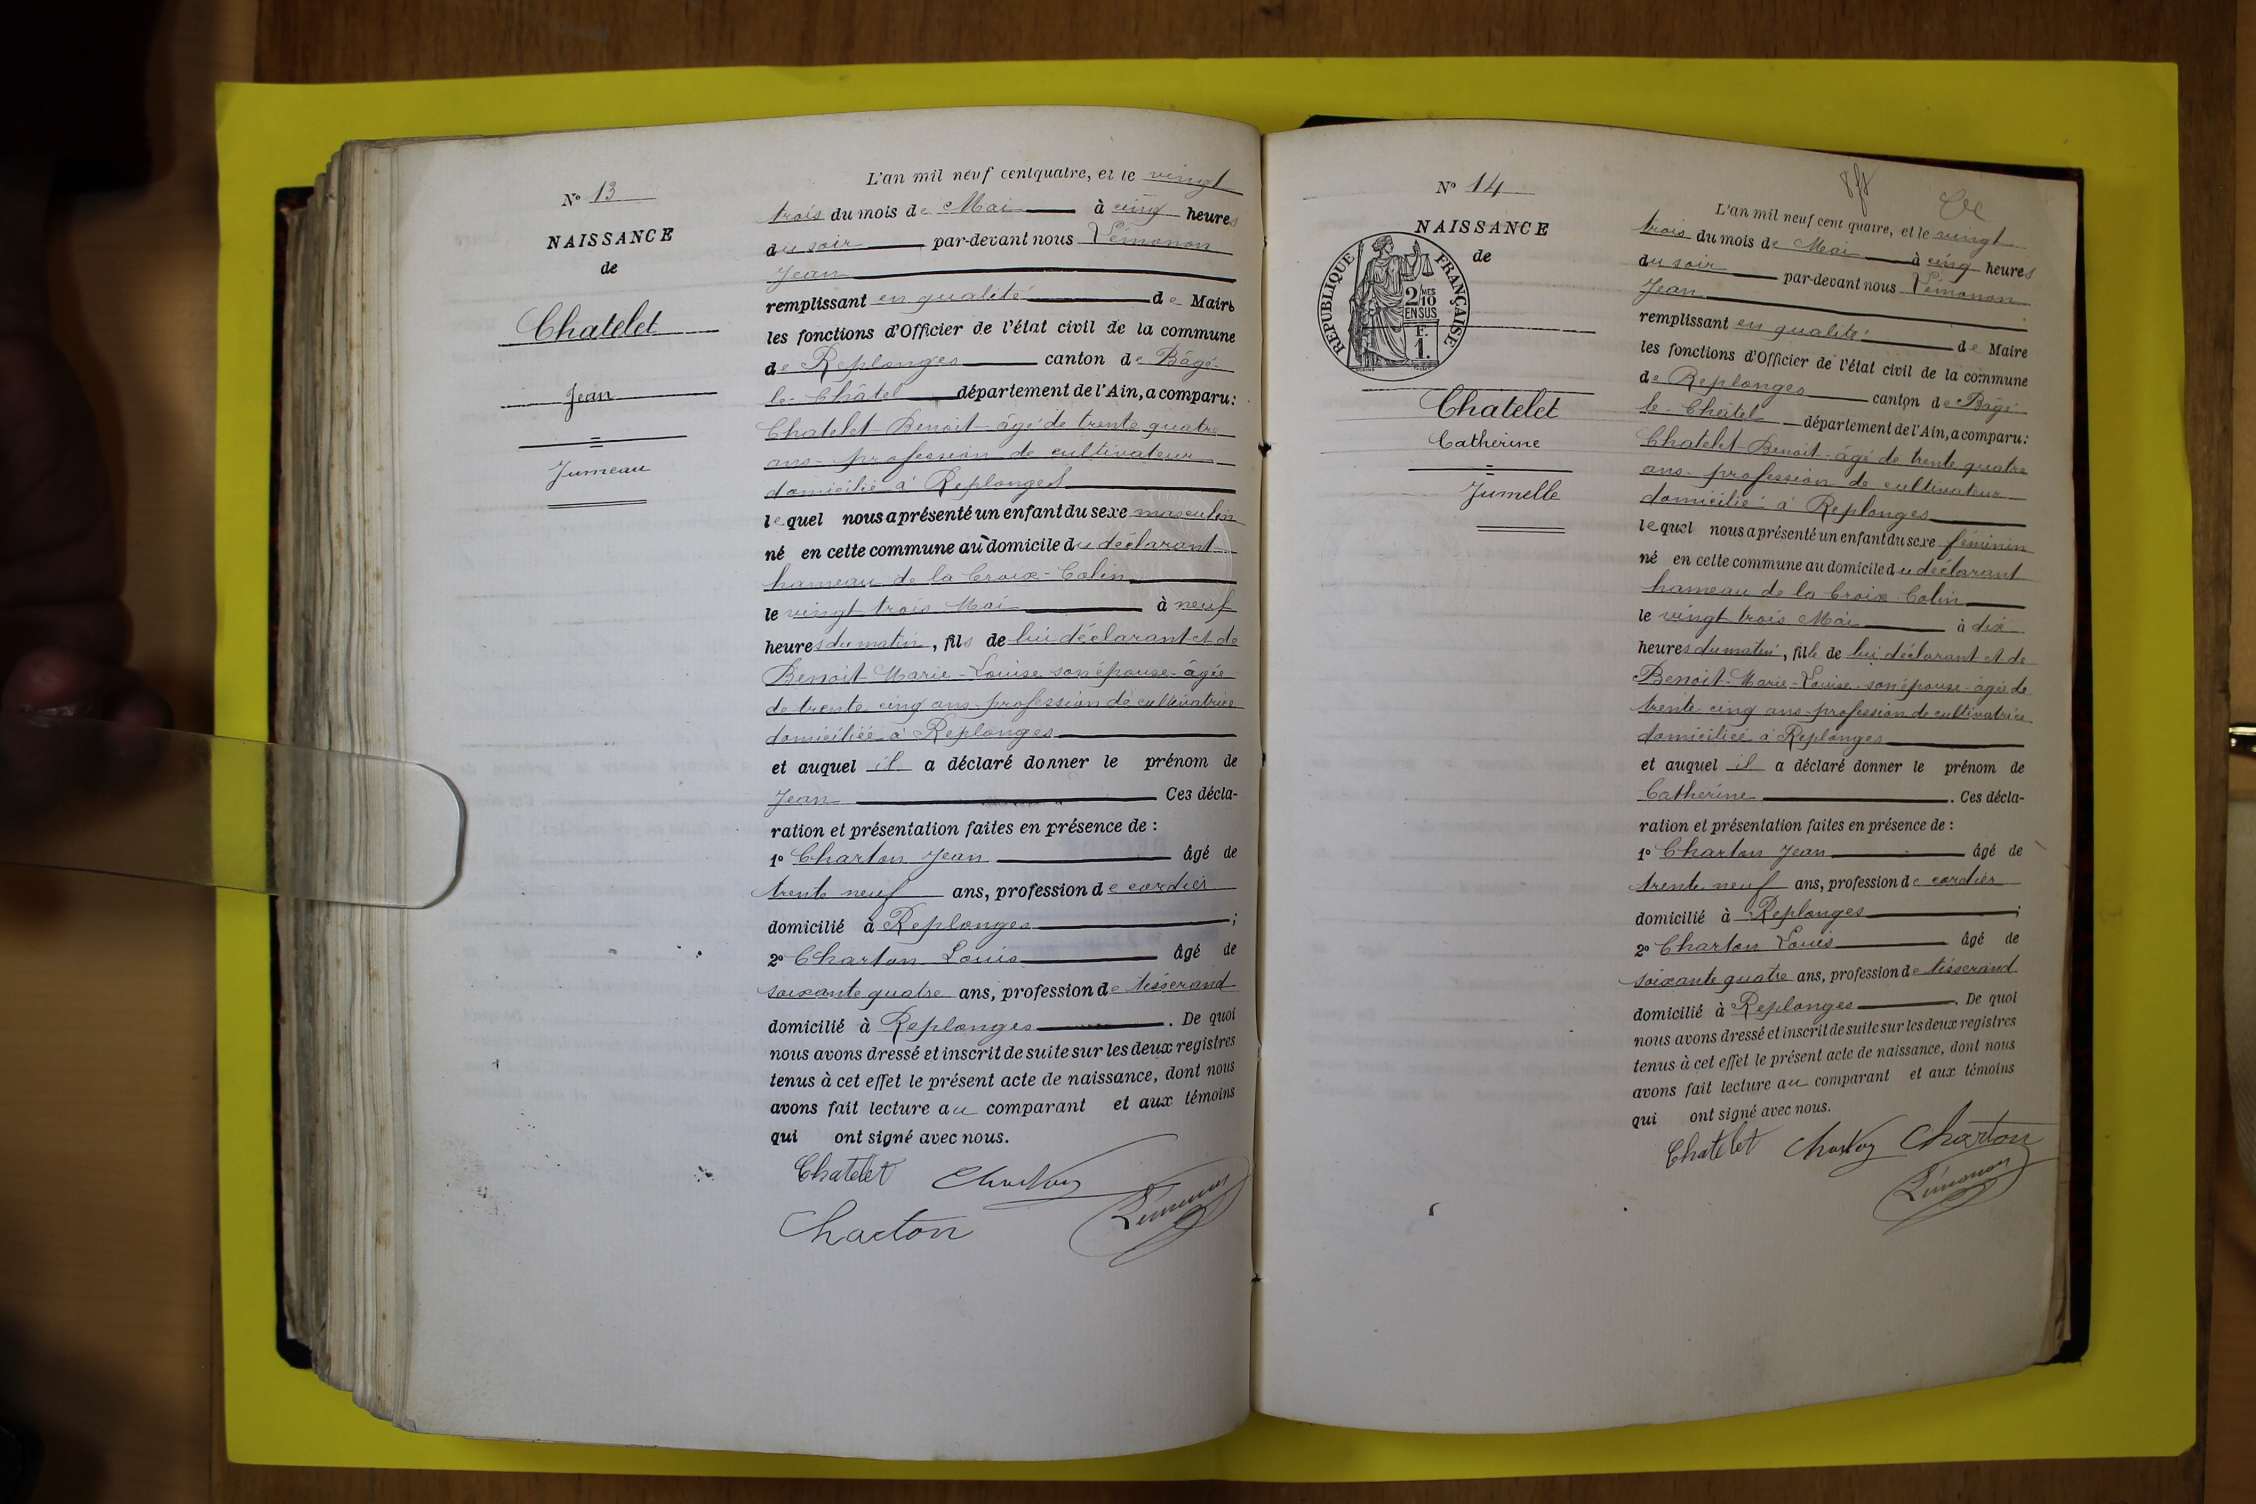 N° 13
NAISSANCE
de
Chatelet
Jean
Jumeau
L'an mil neuf cent quatre, et le vingt
trois du mois de Mai à cinq heures
du soir par-devant nous Lémonon
Jean
remplissant en qualité de Maire
les fonctions d'Officier de l'état civil de la commune
de Replonges canton de Bâgé-
le-Châtel département de l'Ain, a comparu:
Chatelet Benoit âgé de trente quatre
ans profession de cultivateur
domicilié à Replonges
lequel nous a présenté un enfant du sexe masculin
né en cette commune au domicile du déclarant
hameau de la Croix-Colin
le vingt trois Mai à neuf
heures du matin, fils de lui déclarant et de
Benoit Marie-Louise son épouse âgée
de trente cinq ans profession de cultivatrice
domiciliée à Replonges
et auquel il a déclaré donner le prénom de
Jean Ces décla-
ration et présentation faites en présence de :
1° Charton Jean âgé de
trente neuf ans, profession de cordier
domicilié à Replonges ;
2° Charton Louis âgé de
soixante quatre ans, profession de tisserand
domicilié à Replonges . De quoi
nous avons dressé et inscrit de suite sur les deux registres
tenus à cet effet le présent acte de naissance, dont nous
avons fait lecture au comparant et aux témoins
qui ont signé avec nous.
Chatelet Charton
Lémonon
Charton
N° 14
NAISSANCE
de
RÉPUBLIQUE FRANÇAISE
2/10 MES
EN SUS
F.
1.
Chatelet
Catherine
Jumelle
L'an mil neuf cent quatre, et le vingt
trois du mois de Mai à cinq heures
du soir par-devant nous Lémonon
Jean
remplissant en qualité de Maire
les fonctions d'Officier de l'état civil de la commune
de Replonges canton de Bâgé-
le-Châtel département de l'Ain, a comparu:
Chatelet Benoit âgé de trente quatre
ans profession de cultivateur
domicilié à Replonges
lequel nous a présenté un enfant du sexe féminin
né en cette commune au domicile du déclarant
hameau de la Croix Colin
le vingt trois Mai à dix
heures du matin, fille de lui déclarant et de
Benoit Marie-Louise son épouse âgée de
trente cinq ans profession de cultivatrice
domiciliée à Replonges
et auquel il a déclaré donner le prénom de
Catherine . Ces décla-
ration et présentation faites en présence de :
1° Charton Jean âgé de
trente neuf ans, profession de cordier
domicilié à Replonges ;
2° Charton Louis âgé de
soixante quatre ans, profession de tisserand
domicilié à Replonges . De quoi
nous avons dressé et inscrit de suite sur les deux registres
tenus à cet effet le présent acte de naissance, dont nous
avons fait lecture au comparant et aux témoins
qui ont signé avec nous.
Chatelet Charton Charton
Lémonon